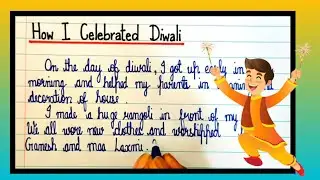 How I Celebrated Diwali
On the day of diwali, I got up early in
morning and helped my parents in
decoration of house.
I made a huge rangoli in front of my
We all wore new clothes and worshipped
Ganesh and maa Laxmi.